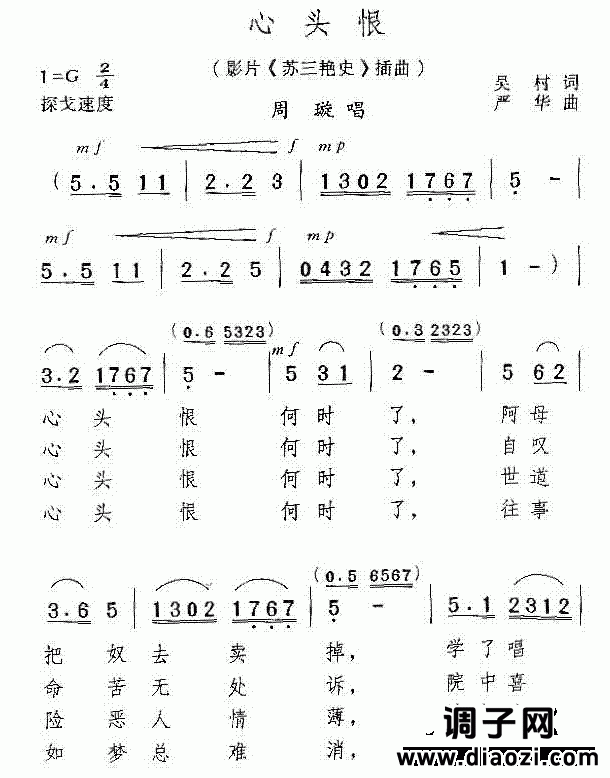 心头恨
(影片《苏三艳史》插曲)
1=G 2/4
探戈速度
周璇唱
吴村词
严华曲
mf f mp
(5.5 11 | 2.2 3 | 1302 1767 | 5 - |
mf f mp
5.5 11 | 2.2 5 | 0432 1765 | 1 - ) |
(0.6 5323) (0.3 2323)
mf
3.2 1767 | 5 - | 5 31 | 2 - | 5 62 |
心头恨何时了,阿母
心头恨何时了,自叹
心头恨何时了,世道
心头恨何时了,往事
(0.5 6567)
3.6 5 | 1302 1767 | 5 - | 5.1 2312 |
把奴去卖掉,学了唱
命苦无处诉,院中喜
险恶人情薄,
如梦总难消,
调子网
www.diaozi.com